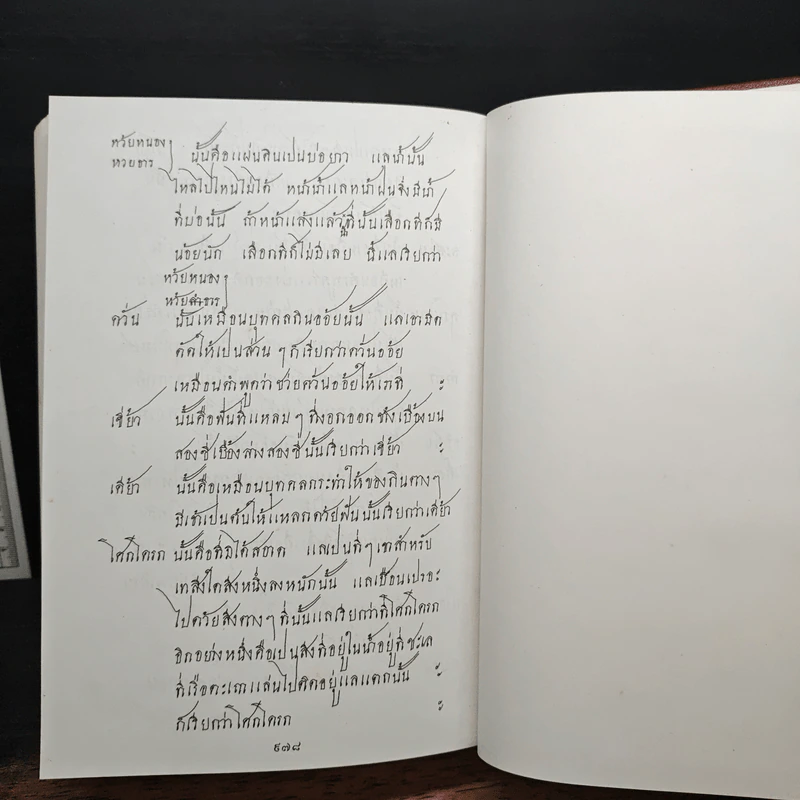 ห้วยหนอง
ห้วยธาร
นั้นคือแผ่นดินเปนบ่อยาว แลน้ำนั้น
ไหลไปไหนไม่ได้ หน้าน้ำแลหน้าฝนจึ่งมีน้ำ
ที่บ่อนั้น ถ้าหน้าแล้งแล้วที่นั้นเลือกที่ก็มี
น้อยนัก เลือกที่ก็ไม่มีเลย นี้แลเรียกว่า
ห้วยหนอง
ห้วยธาร
ควั่น นั้นเหมือนบุทคลกินอ้อยนั้น แลเอามีด
ตัดให้เปนส่วนๆ ก็เรียกว่าควั่นอ้อย
เหมือนคำพูดว่าช่วยควั่นอ้อยให้เรทีฯ
เขี้ยว นั้นคือฟันที่แหลมๆ ที่งอกออกข้างเบื้องบน
สองซี่เบื้องล่างสองซี่นั้นเรียกว่าเขี้ยวฯ
เคี้ยว นั้นคือเหมือนบุทคลกระทำให้ของกินต่างๆ
มีเข้าเปนต้นให้แหลกด้วยฟันนั้นเรียกว่าเคี้ยว
โศกโครก นั้นคือที่มิได้สอาด แลเปนที่ๆ เขาสำหรับ
เทสิ่งใดสิ่งหนึ่งลงหนักนั้น แลเปื้อนเปรอะ
ไปด้วยสิ่งต่างๆ ที่นั้นแลเรียกว่าที่โศกโครก
อีกอย่างหนึ่งคือเปนสิ่งที่อยู่ในน้ำอยู่ที่ชะเล
ที่เรือตะเภาแล่นไปติดอยู่แลแตกนั้นฯ
ก็เรียกว่าโศกโครกฯ
๙๗๘